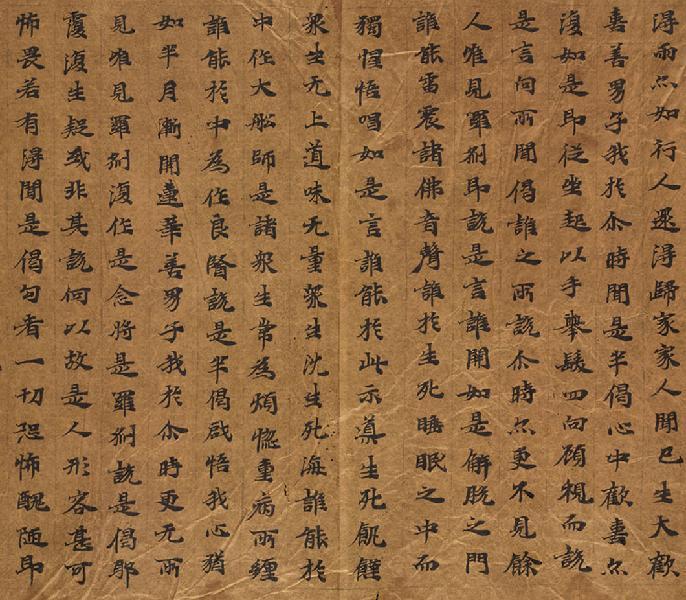 得雨亦如行人還得歸家家人聞已生大歡
喜善男子我於尒時聞是半偈心中歡喜亦
復如是即從坐起以手舉髮四向顧視而說
是言向所聞偈誰之所說尒時亦更不見餘
人唯見羅剎即說是言誰開如是解脫之門
誰能雷震諸佛音聲誰於生死睡眠之中而
獨惺悟唱如是言誰能於此示導生死飢饉
眾生无上道味无量眾生沈生死海誰能於
中作大船師是諸眾生常為煩惱重病所纏
誰能於中為作良醫說是半偈啟悟我心猶
如半月漸開蓮華善男子我於尒時更无所
見唯見羅剎復作是念將是羅剎說是偈耶
覆復生疑或非其說何以故是人形容甚可
怖畏若有得聞是偈句者一切恐怖醜陋即